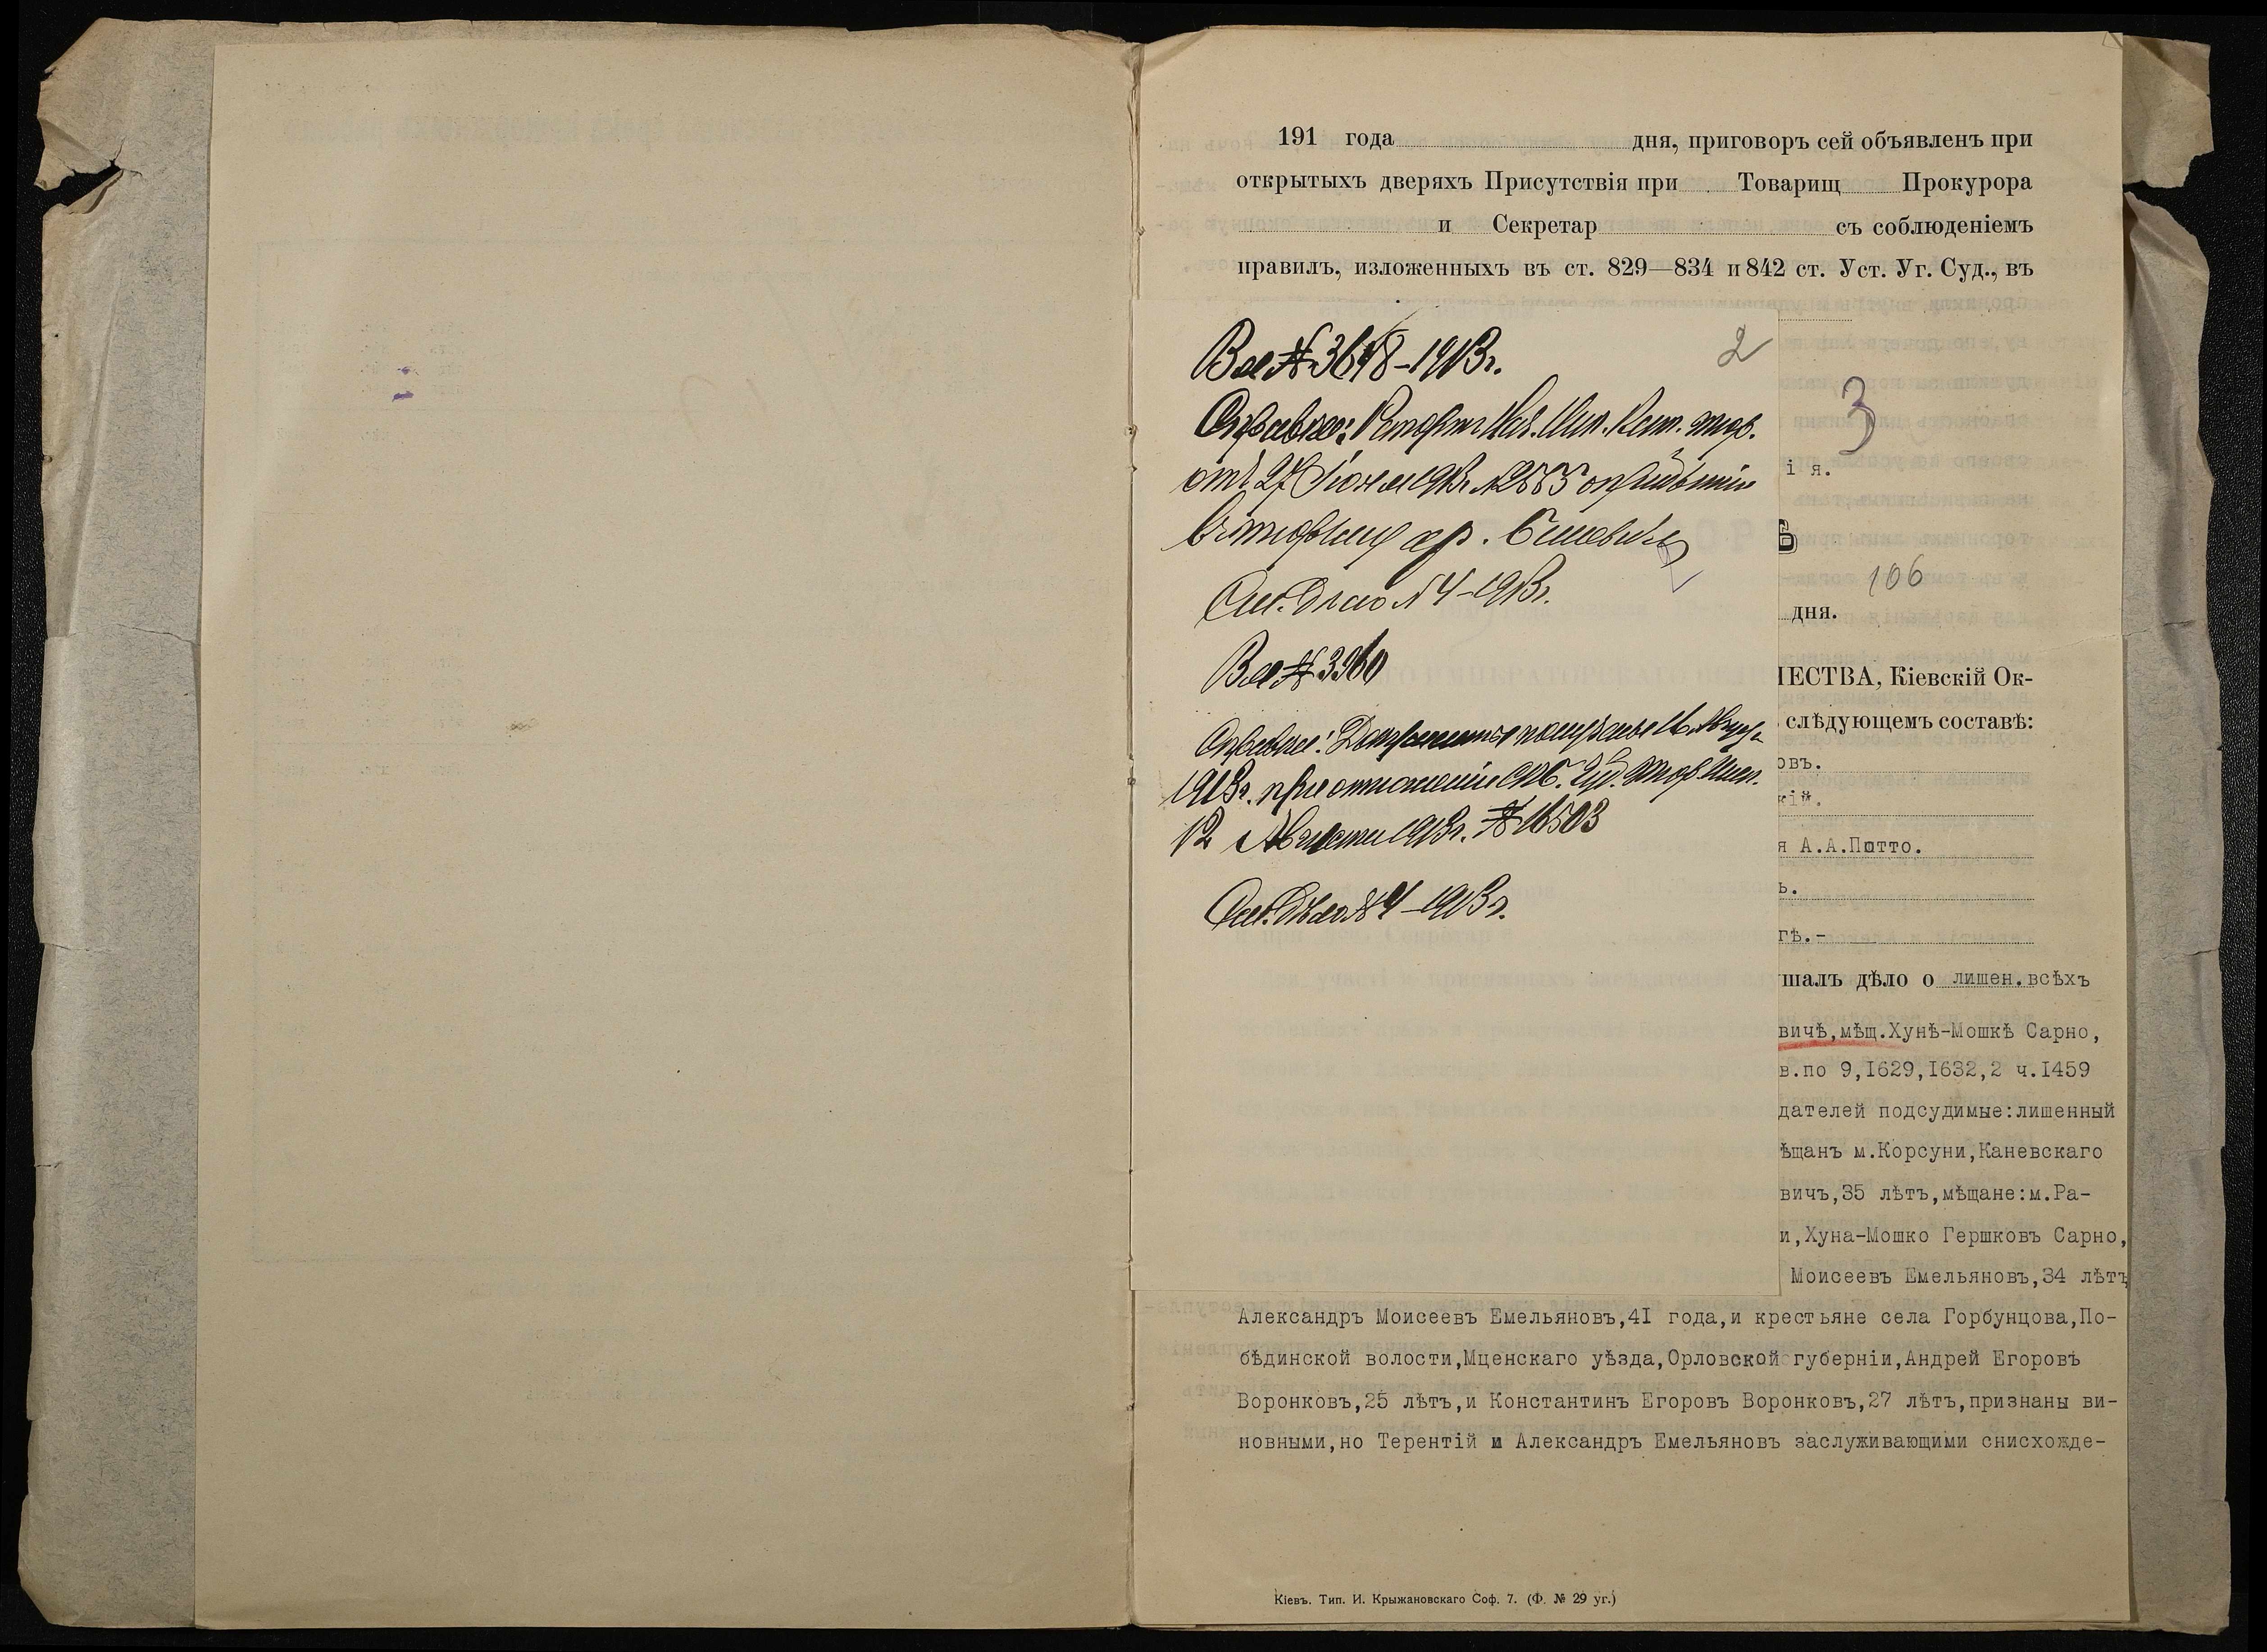 191 года дня, приговоръ сей объявленъ при
открытыхъ дверяхъ Присутствія при Товарищ Прокурора
и Секретар съ соблюденіемъ
правилъ, изложенныхъ въ ст. 829—834 и 842 ст. Уст. Уг. Суд., въ
2
Вх № 3648-1913г.
Справка: Рапортъ Нач. тюр.
отъ 27 Іюня 1913г. № о прибытіи
въ тюрьму ар.
Сит. дѣло № 4-1913г.
Вх № 3960
Справка:
1913г. при отношеніи СПБ. Губ. Тюр. Инсп.
12 Августа 1913г. № 16503
Сит. дѣло № 4-1913г.
3
і я.
Ъ
106
дня.
ЧЕСТВА, Кіевскій Ок-
слѣдующемъ составѣ:
овъ.
кій.
я А.А.Потто.
ь.
гѣ.-
шалъ дѣло о лишен.всѣхъ
вичѣ,мѣщ.Хунѣ-Мошкѣ Сарно,
в.по 9,I629,I632,2 ч.I459
дателей подсудимые:лишенный
ѣщанъ м.Корсуни,Каневскаго
вичъ,35 лѣтъ,мѣщане:м.Ра-
и,Хуна-Мошко Гершковъ Сарно,
Моисеевъ Емельяновъ,34 лѣтъ
Александръ Моисеевъ Емельяновъ,4I года,и крестьяне села Горбунцова,По-
бѣдинской волости,Мценскаго уѣзда,Орловской губерніи,Андрей Егоровъ
Воронковъ,25 лѣтъ,и Константинъ Егоровъ Воронковъ,27 лѣтъ,признаны ви-
новными,но Терентій и Александръ Емельяновъ заслуживающими снисхожде-
Кіевъ. Тип. И. Крыжановскаго Соф. 7. (Ф. № 29 уг.)